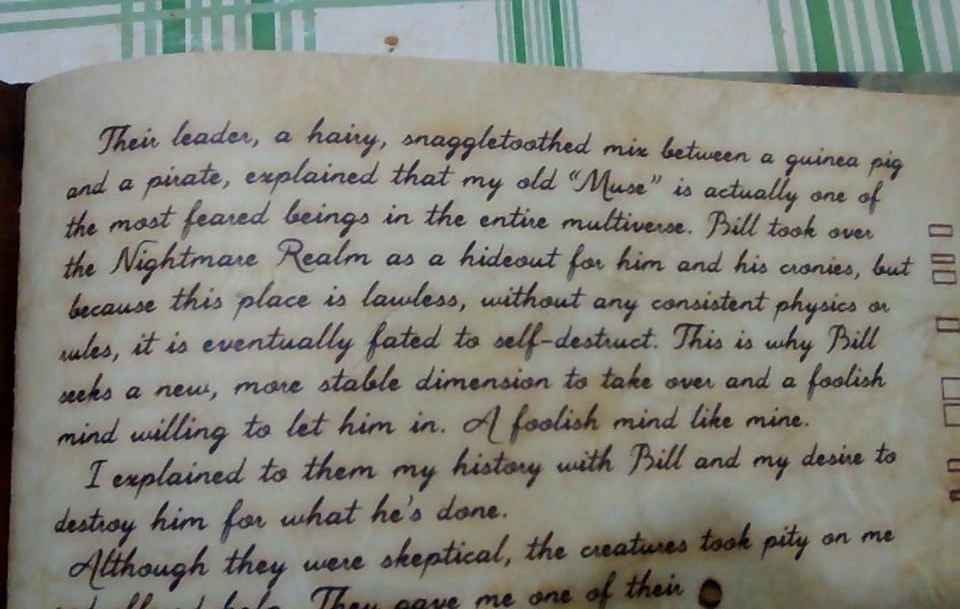 Their leader, a hairy, snaggletoothed mix between a guinea pig
and a pirate, explained that my old "Muse" is actually one of
the most feared beings in the entire multiverse. Bill took over
the Nightmare Realm as a hideout for him and his cronies, but
because this place is lawless, without any consistent physics or
rules, it is eventually fated to self-destruct. This is why Bill
seeks a new, more stable dimension to take over and a foolish
mind willing to let him in. A foolish mind like mine.
I explained to them my history with Bill and my desire to
destroy him for what he's done.
Although they were skeptical, the creatures took pity on me
help. They gave me one of their